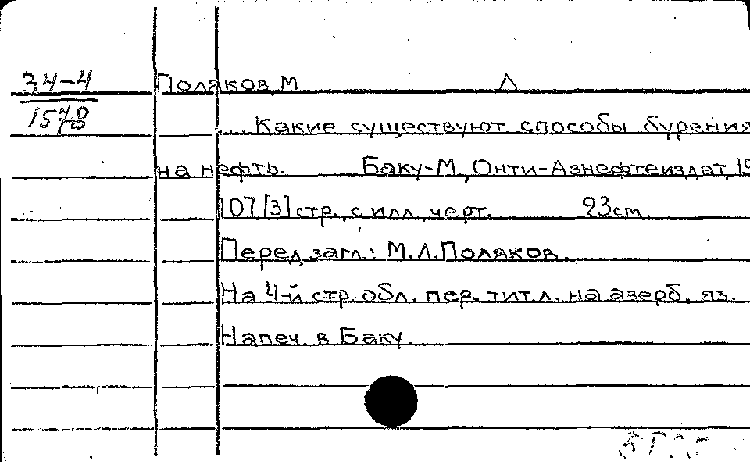 34-4 Поляков М Л
1578
... Какие существуют способы бурения
на нефть. Баку-М., Онти-Азнефтеиздат, 19
107 [3] стр. с илл. черт. 23 см.
Перед загл.: М.Л. Поляков.
На 4-й стр. обл. пер. тит. л. на азерб. яз.
Напеч. в Баку.